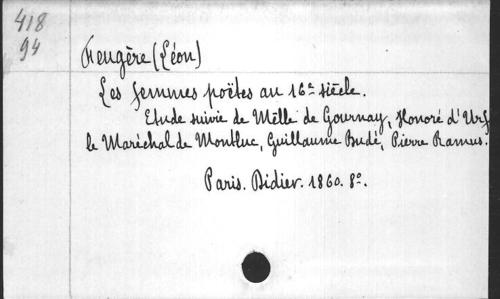 418
94
Feugère (Léon)
Les femmes poëtes au 16e siècle.
Etude suivie de Melle de Gournay, Honoré d'Urf
le Maréchal de Montluc, Guillaume Budé, Pierre Ramus.
Paris. Didier. 1860. 8o.